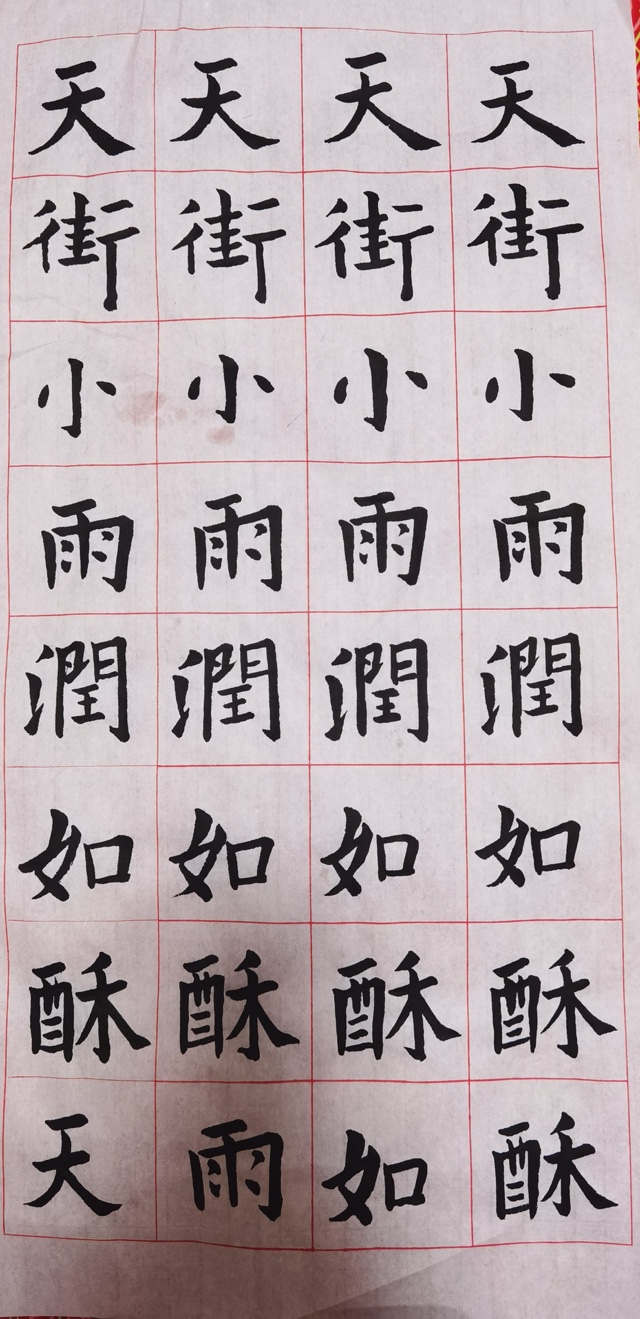 天天天天
街街街街
小小小小
雨雨雨雨
潤潤潤潤
如如如如
酥酥酥酥
天雨如酥